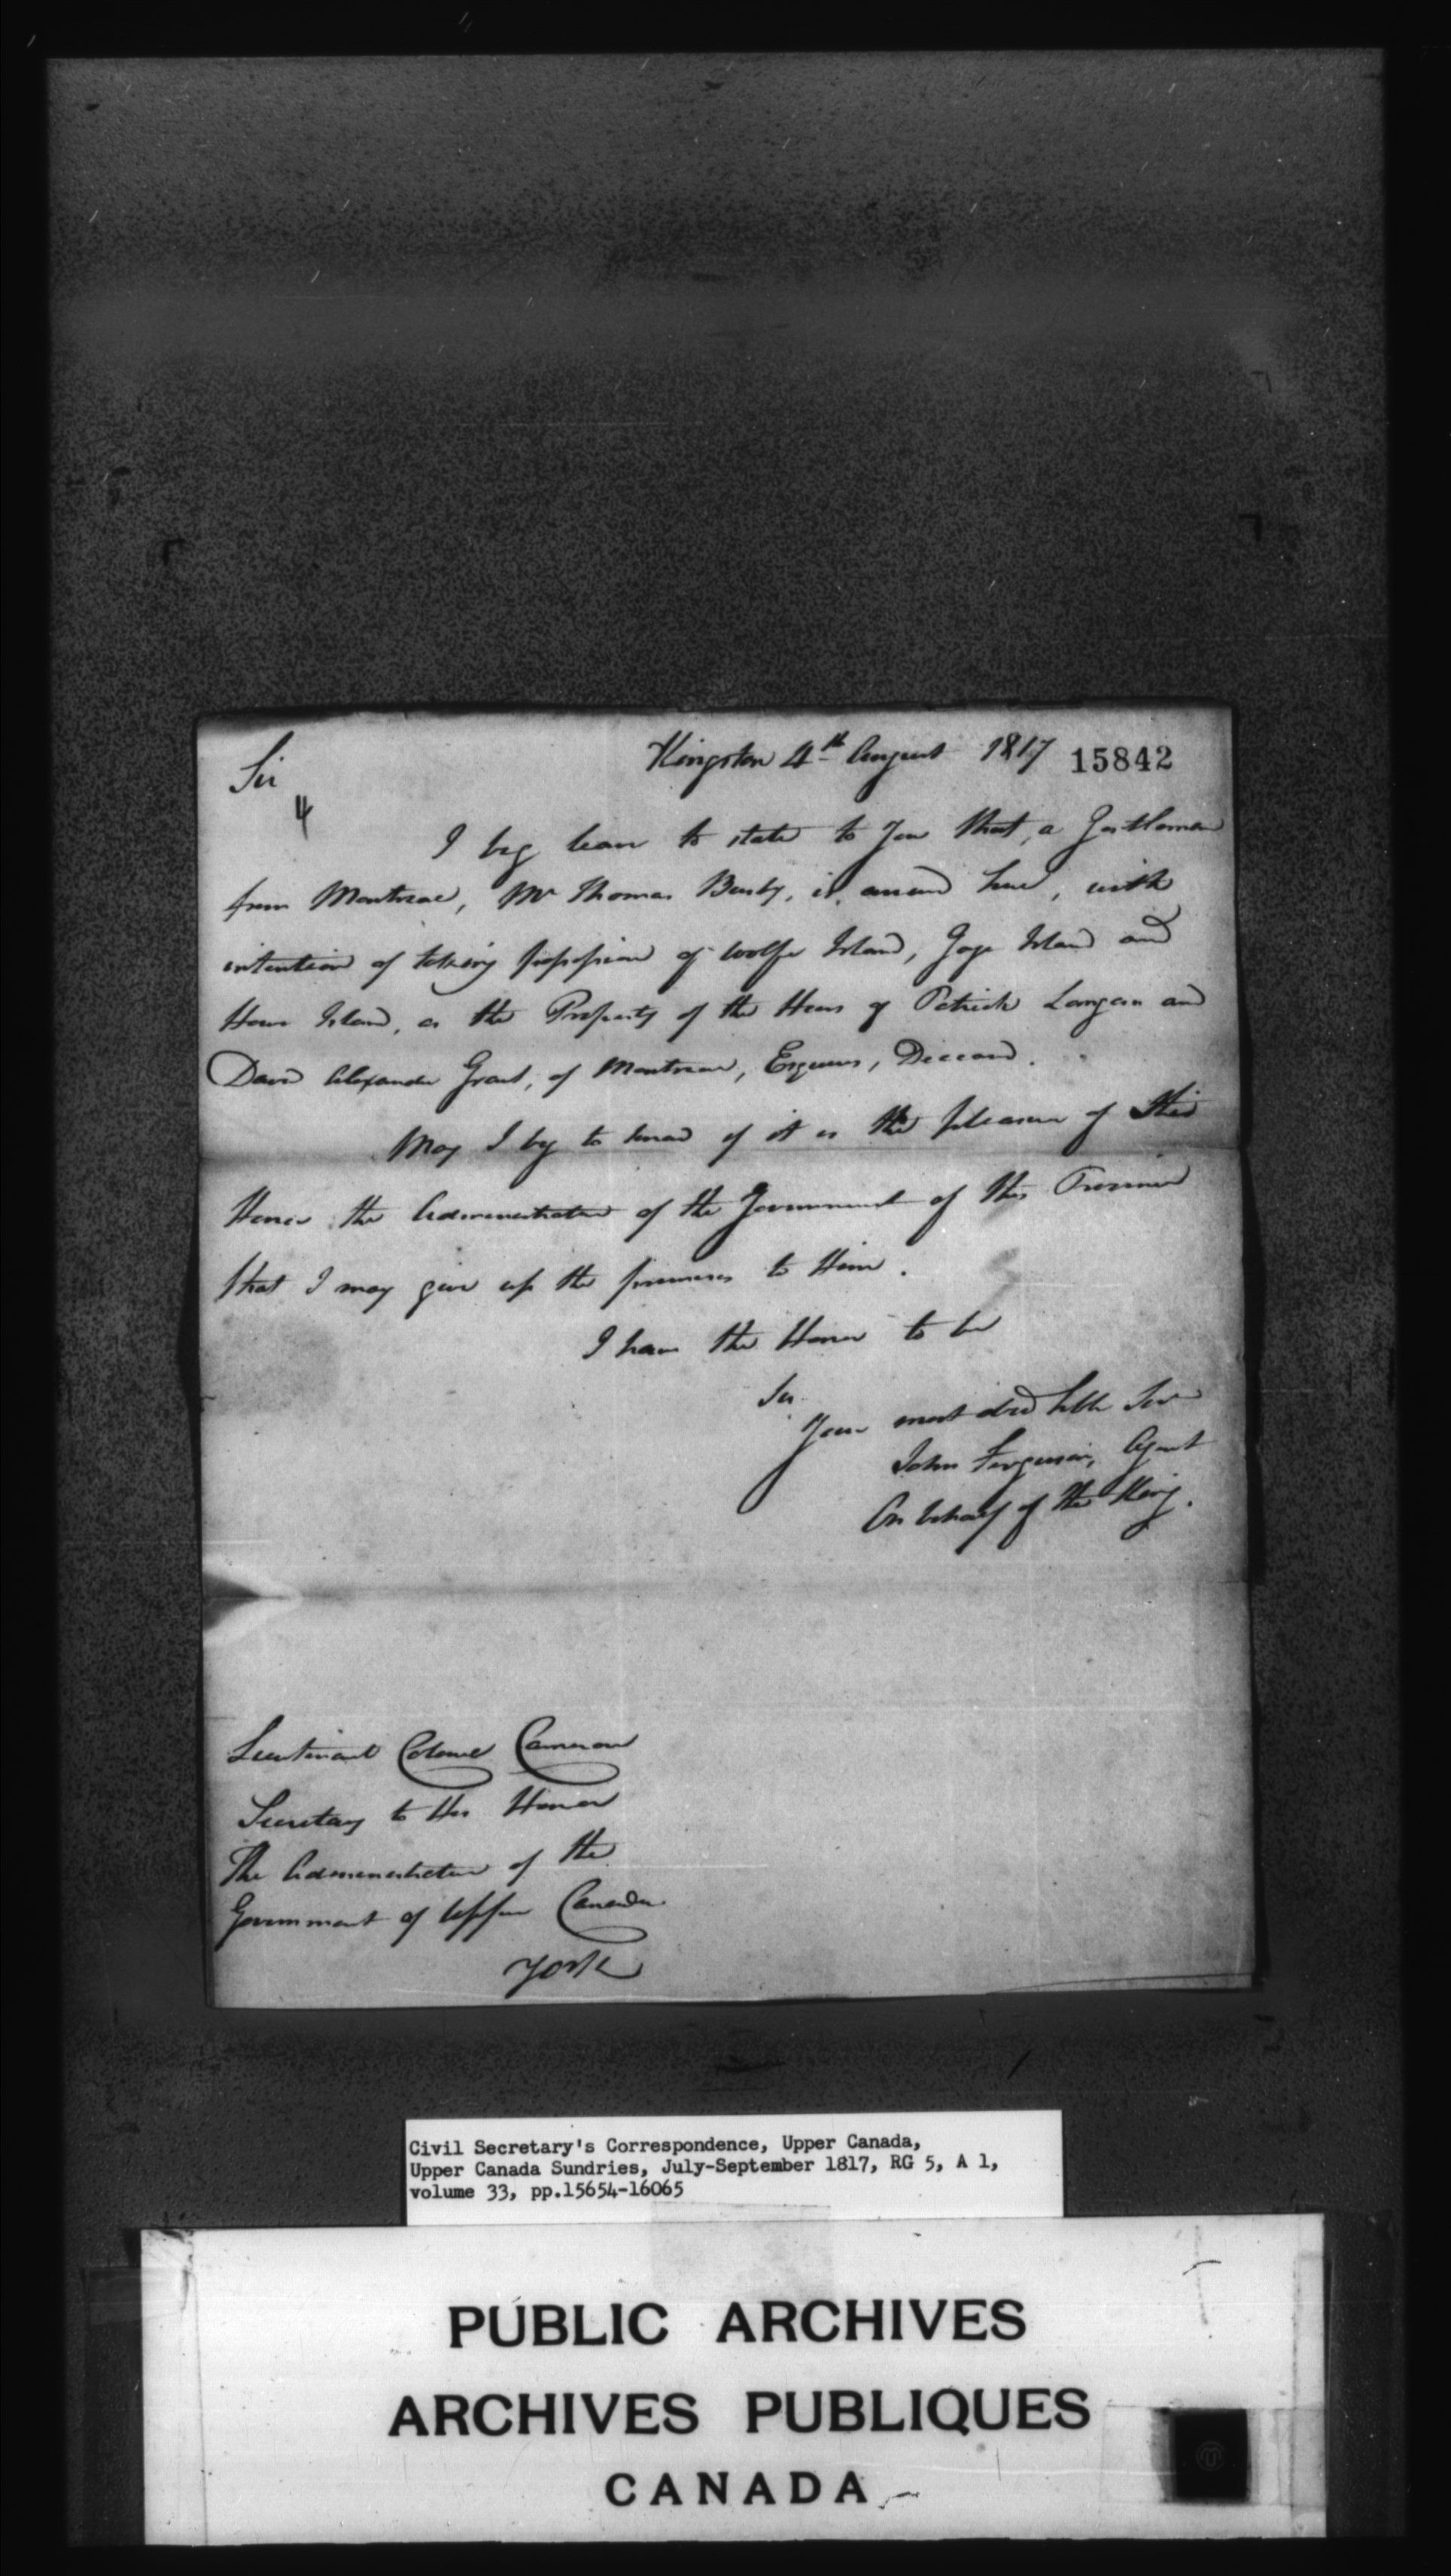 Kingston 4th August 1817 15842
Sir
4
I beg leave to state to You that, a Gentleman
from Montreal, Mr Thomas Busby, is arrived here, with
intention of taking possession of Wolfe Island, Gage Island and
Howe Island, as the Property of the Heirs of Patrick Langan and
David Alexander Grant, of Montreal, Esquires, Deceased.
May I beg to know if it is the pleasure of His
Honor the Administrator of the Government of this Province
that I may give up the premises to Him.
I have the Honor to be
Sir
Your most obed hble Serv
John Ferguson, Agent
On behalf of the King.
Lieutenant Colonel Cameron
Secretary to His Honor
The Administrator of the
Government of Upper Canada
York
Civil Secretary's Correspondence, Upper Canada,
Upper Canada Sundries, July-September 1817, RG 5, A 1,
volume 33, pp.15654-16065
PUBLIC ARCHIVES
ARCHIVES PUBLIQUES
CANADA